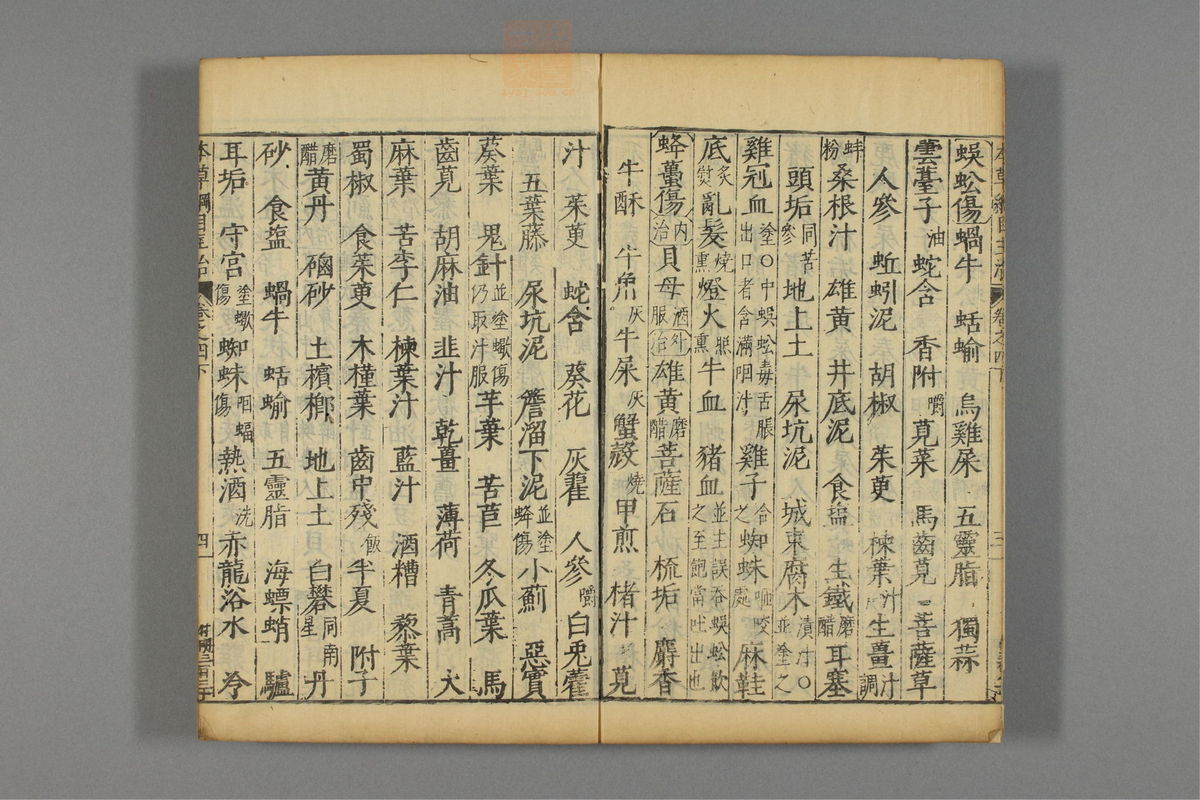 蜈蚣傷蝸牛 蛞蝓 烏雞屎 五靈脂 獨蒜
雲薹子油蛇含 香附嚼莧菜 馬齒莧 菩薩草
人參 蚯蚓泥 胡椒 茱萸 楝葉汁生薑汁調
蚌粉桑根汁 雄黃 井底泥 食盐 生鐵磨醋耳塞
頭垢同苦參地上土 屎坑泥 城東腐木漬汁○並塗之
雞冠血塗○中蜈蚣毒舌脹出口者含滿咽汁雞子合之蜘蛛咂咬處麻鞋
底炙熨亂髮燒熏燈火照熏牛血 豬血並主誤吞蜈蚣飲之至飽當吐出也
蜂蠆傷內治貝母酒服外治雄黃磨醋菩薩石 梳垢 麝香
牛酥 牛角灰牛屎灰蟹殼燒甲煎 楮汁 莧
汁 茱萸 蛇含 葵花 灰藋 人參嚼白兎藋
五葉藤 尿坑泥 簷溜下泥並塗蜂傷小薊 惡實
葵葉 鬼針並塗蠍傷仍取汁服芋葉 苦苣 冬瓜葉 馬
齒莧 胡麻油 韭汁 乾薑 薄荷 青蒿 大
麻葉 苦李仁 楝葉汁 藍汁 酒糟 藜葉
蜀椒 食茱萸 木槿葉 齒中殘飯半夏 附子
磨醋黃丹 硇砂 土檳榔 地上土 白礬同南星丹
砂 食鹽 蝸牛 蛞蝓 五靈脂 海螵蛸 驢
耳垢 守宮塗蠍傷蜘蛛咂蝠傷熱酒洗赤龍浴水 冷